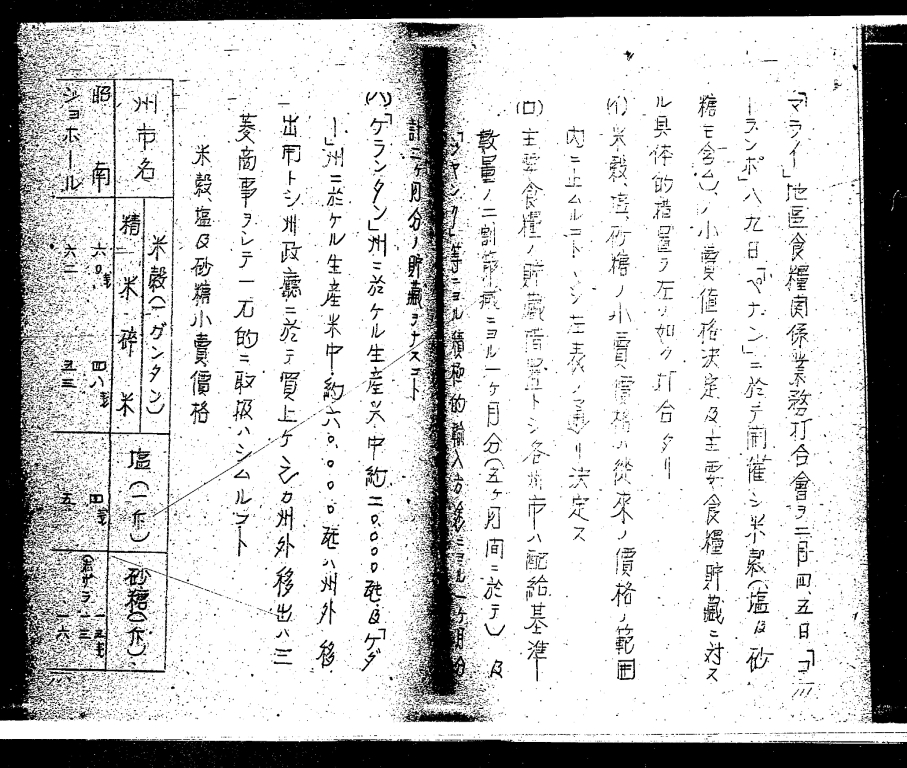 「マライ」地區食糧関係業務打合會ヲ二月四、五日「コ
ーランポ」八九日「ペナン」ニ於テ開催シ米穀(塩及砂
糖モ含ム)ノ小賣値格決定及主要食糧貯蔵ニ対ス
ル具体的措置ヲ左ノ如ク打合タリ
(イ)米穀、塩、砂糖ノ小賣價格ハ從來ノ價格ノ範囲
内ニ止ムルコトトシ左表ノ通リ決定ス
(ロ)主要食糧ノ貯蔵措置トシ各州市ハ配給基準
数量ノ二割節減ニヨル一ヶ月分(五ヶ月間ニ於テ)及
「ジャンク」等ニヨル積極的輸入方策ニヨル一ヶ月分
計二ヶ月分ノ貯蔵ヲナスコト
(ハ)「ケランタン」州ニ於ケル生産米中約二〇、〇〇〇砘及「ケダ
ー」州ニ於ケル生産米中約六〇、〇〇〇砘ハ州外移
出用トシ州政廳ニ於テ買上ケシ之カ州外移出ハ三
菱商事ヲシテ一元的ニ取扱ハシムルコト
米穀、塩及砂糖小賣價格
州市名 米穀(一ガンタン) 塩(一斤) 砂糖(一斤)
精米 碎米
昭南 六〇、仙 四八仙 四仙
ショホール 六二 五三 五 一六